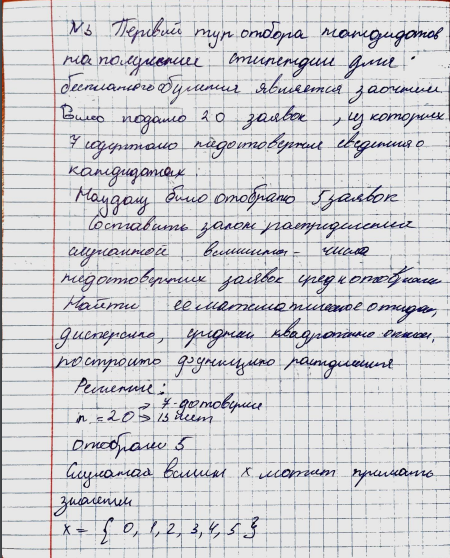 №3 Первый тур отбора кандидатов
на получение стипендии для
бесплатного обучения является заочным
Было подано 20 заявок, из которых
7 содержало недостоверные сведения о
кандидатах.
Наудачу было отобрано 5 заявок
Составить закон распределения
случайной величины - числа
недостоверных заявок среди отобранных
Найти ее математическое ожидан,
дисперсию, среднее квадратично отклон,
построить функцию распделения
Решение:
n = 20 → 7-достоверн
→ 13 нет
отобрали 5
Случайная величин х может принимать
значения
x = { 0, 1, 2, 3, 4, 5 }